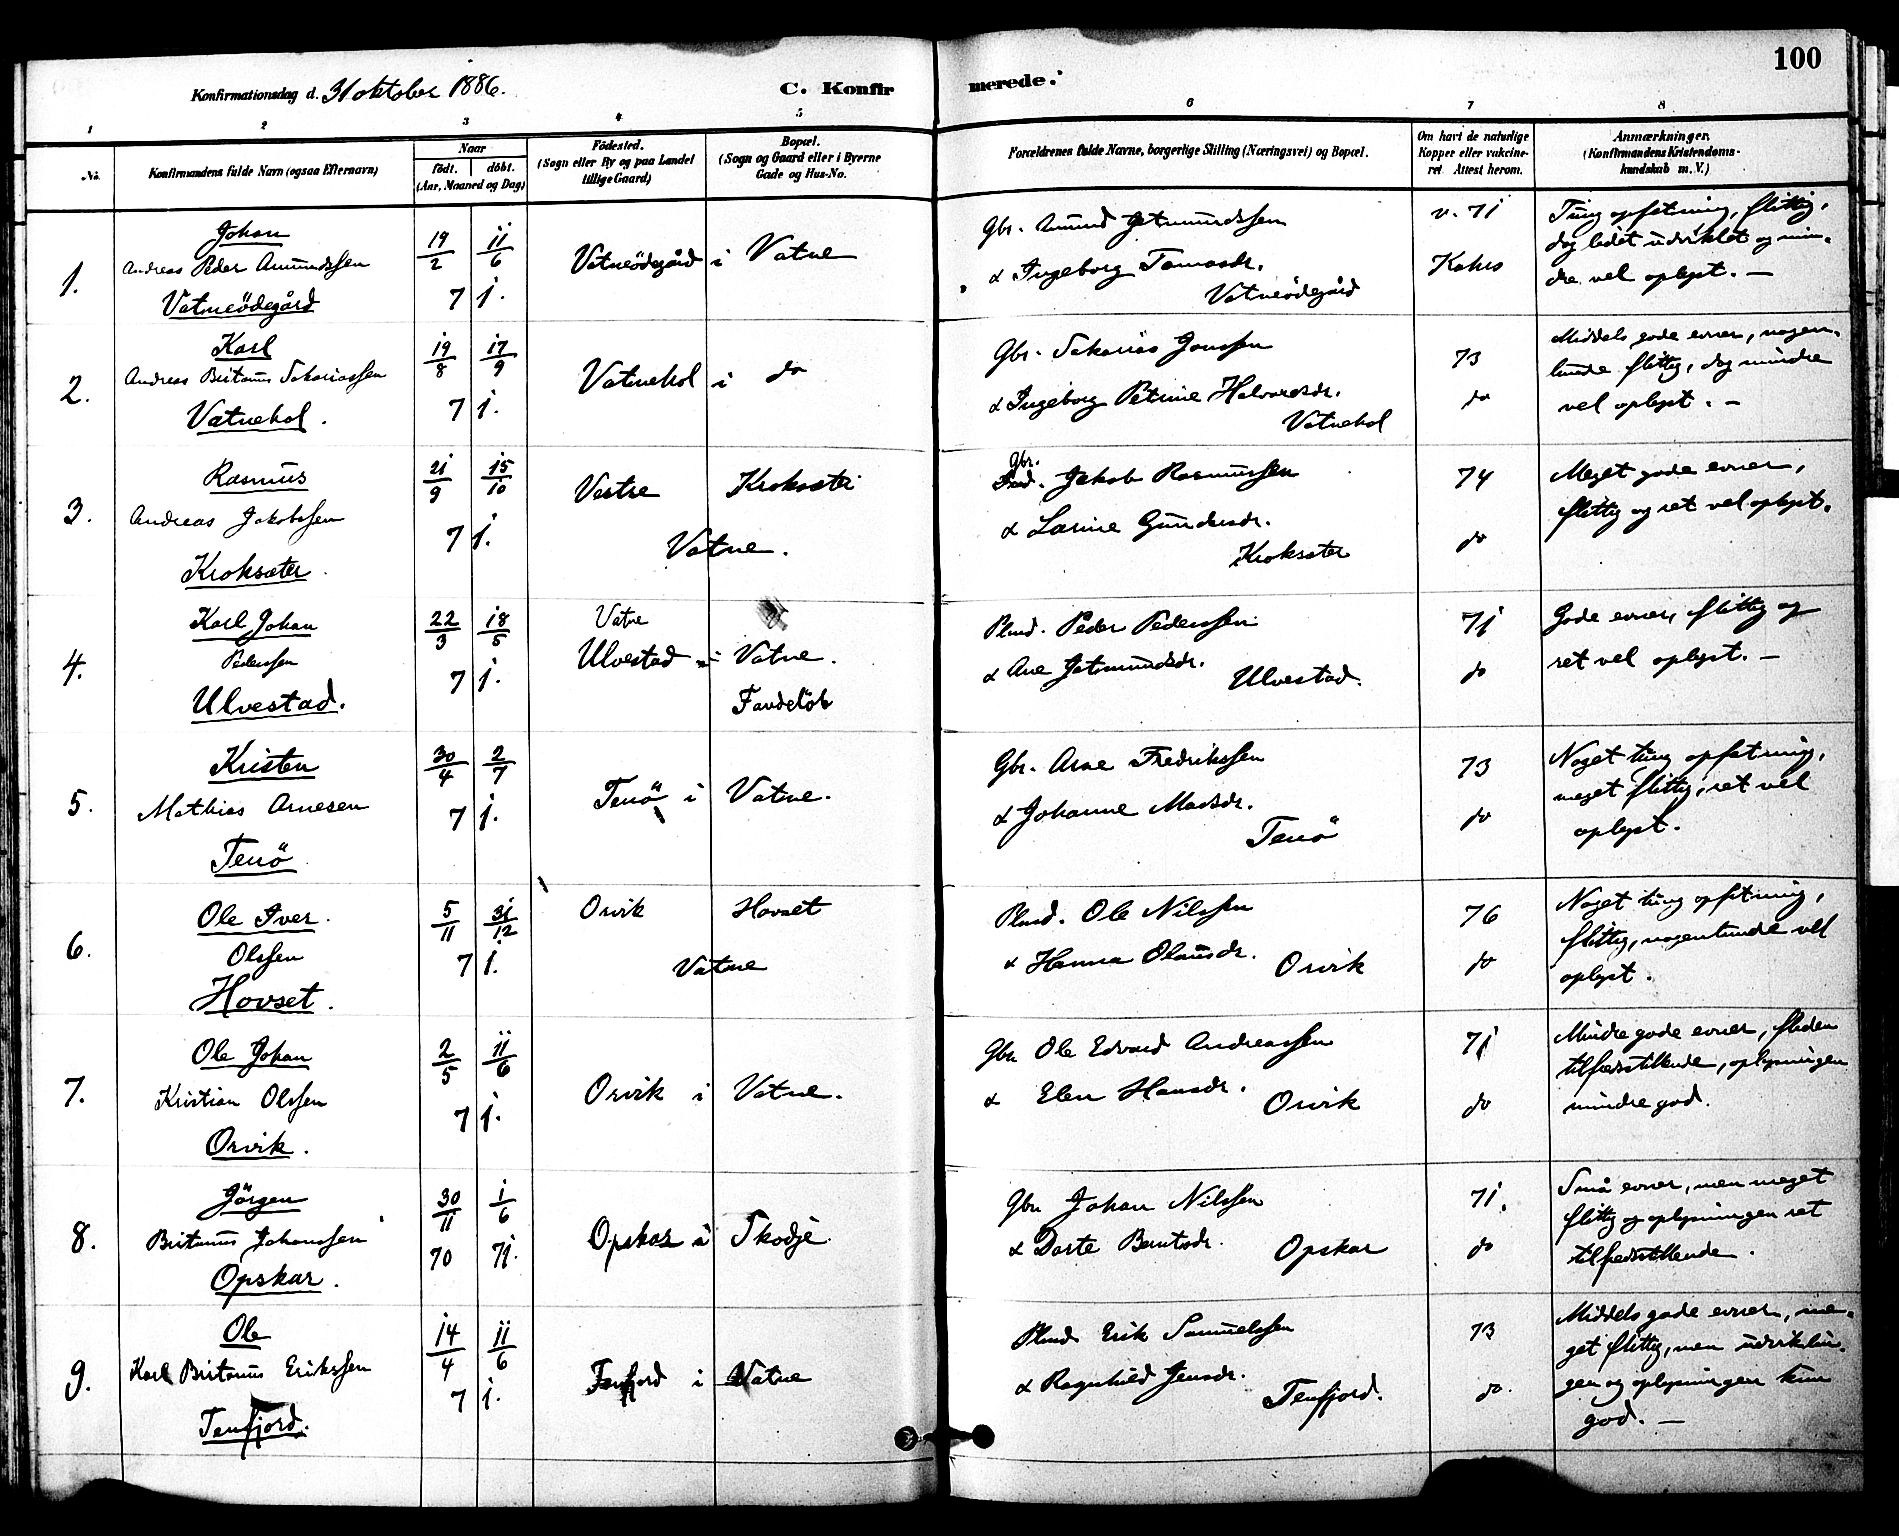 100
Konfirmationsdag d. 31 oktober 1886.
C. Konfirmerede.
1 2 3 4 5 6 7 8
No.
Konfirmandens fulde Navn (ogsaa Efternavn)
Naar
födt. döbt.
(Aar, Maaned og Dag)
Födested.
(Sogn eller By og paa Landet
tillige Gaard)
Bopæl.
(Sogn og Gaard eller i Byerne
Gade og Hus-No.
Forældrenes fulde Navne, borgerlige Stilling (Næringsvei) og Bopæl.
Om havt de naturlige
Kopper eller vakcine-
ret. Attest herom.
Anmærkninger.
(Konfirmandens Kristendoms-
kundskab m. V.)
1.
Johan
Andreas Peder Amundssen
Vatneödegård
19/2 11/6
71.
Vatneödegård i Vatne
Gbr. Amund Jetmundssen
& Ingeborg Tomasdr.
Vatneödegård
v. 71
Kahrs
Tung opfatning, flittig,
dog lidet udviklet og min-
dre vel oplyst. —
2.
Karl
Andreas Britanus Sakariassen
Vatnehol.
19/8 17/9
71.
Vatnehol i do
Gbr. Sakarias Jonssen
& Ingeborg Petrine Halvardsdr.
Vatnehol
73
do
Middels gode evner, nogen-
lunde flittig, dog mindre
vel oplyst. —
3.
Rasmus
Andreas Jakobssen
Kroksæter.
21/9 15/10
71.
Vestre Kroksæter
Vatne.
Gbr.
Jakob Rasmussen
& Larine Gundersdr.
Kroksæter
74
do
Meget gode evner,
flittig og ret vel oplyst.
4.
Karl Johan
Pederssen
Ulvestad.
22/3 18/5
71.
Vatne
Ulvestad i Vatne.
Plmd. Peder Pederssen
& Ane Jetmundsdr.
Ulvestad.
71
do
Gode evner, flittig og
ret vel oplyst. —
5.
Kristen
Mathias Arnesen
Tenö
30/4 2/7
71.
Tenö i Vatne.
Gbr. Arne Fredrikssen
& Johanne Madsdr.
Tenö
73
do
Noget tung opfatning,
meget flittig, ret vel
oplyst.
6.
Ole Iver.
Olssen
Hovset.
5/11 31/12
71.
Orvik Hovset
Vatne
Plmd. Ole Nilssen
& Hanna Olausdr.
Orvik
76
do
Noget tung opfatning,
flittig, nogenlunde vel
oplyst.
7.
Ole Johan
Kristian Olssen
Orvik.
2/5 11/6
71.
Orvik i Vatne.
Gbr. Ole Edvard Andreassen
& Elen Hansdr.
Orvik
71
do
Mindre gode evner, fliden
tilfredsstillende, oplysningen
mindre god.
8.
Jörgen
Britanus Johanssen
Opskar.
30/11 1/6
70 71.
Opskar i Skodje
Gbr. Johan Nilssen
& Dorte Berntsdr.
Opskar
71.
do
Små evner, men meget
flittig og oplysningen ret
tilfredsstillende.
9.
Ole
Karl Britanus Erikssen
Tenfjord.
14/4 11/6
71.
Tenfjord i Vatne
Plmd. Erik Samuelssen
& Ragnhild Jensdr.
Tenfjord.
73
do.
Middels gode evner, me-
get flittig, men udviklin-
gen og oplysningen kun
god. —